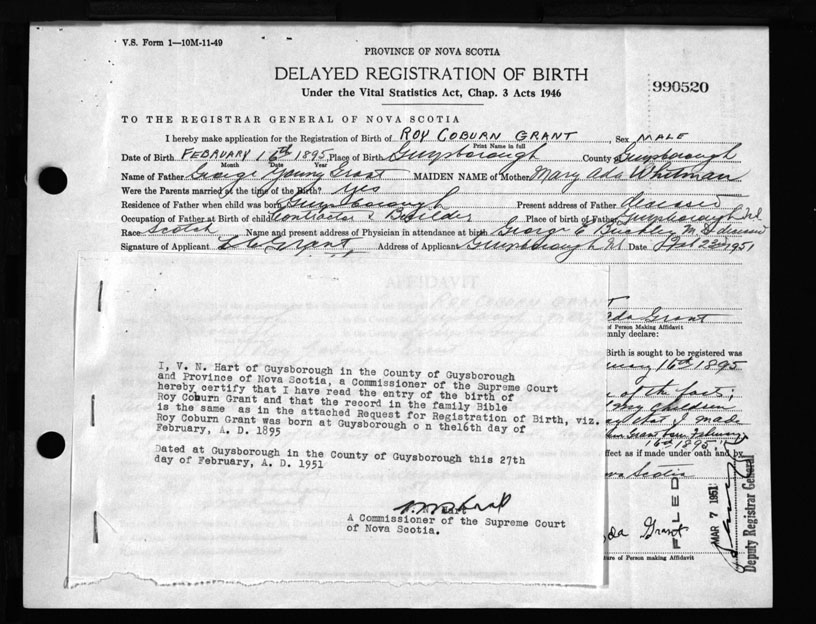 V.S. Form 1—10M-11-49
PROVINCE OF NOVA SCOTIA
DELAYED REGISTRATION OF BIRTH
Under the Vital Statistics Act, Chap. 3 Acts 1946
990520
TO THE REGISTRAR GENERAL OF NOVA SCOTIA
I hereby make application for the Registration of Birth of ROY COBURN GRANT, Sex MALE
Print Name in full
Date of Birth FEBRUARY 16th 1895, Place of Birth Guysborough County of Guysborough
Month Date Year
Name of Father George Young Grant MAIDEN NAME of Mother Mary Ada Whitman
Were the Parents married at the time of the Birth? yes
Residence of Father when child was born Guysborough Present address of Father deceased
Occupation of Father at Birth of child Contractor & Builder Place of birth of Father Guysborough
Race Scotch Name and present address of Physician in attendance at birth George E Buckley M.D. deceased
Signature of Applicant Grant Address of Applicant Guysborough Date 23rd 1951
AFFIDAVIT
ROY COBURN GRANT
Ada Grant
of Person Making Affidavit
mnly declare:
Birth is sought to be registered was
February 16th 1895
of the facts;
my children
made
16th 1895
ffect as if made under oath and by
ova Scotia
da Grant
ture of Person making Affidavit
FILED
MAR 7 1951
Deputy Registrar General
I, V. N. Hart of Guysborough in the County of Guysborough
and Province of Nova Scotia, a Commissioner of the Supreme Court
hereby certify that I have read the entry of the birth of
Roy Coburn Grant and that the record in the family Bible
is the same as in the attached Request for Registration of Birth, viz.
Roy Coburn Grant was born at Guysborough o n the16th day of
February, A. D. 1895
Dated at Guysborough in the County of Guysborough this 27th
day of February, A. D. 1951
A Commissioner of the Supreme Court
of Nova Scotia.